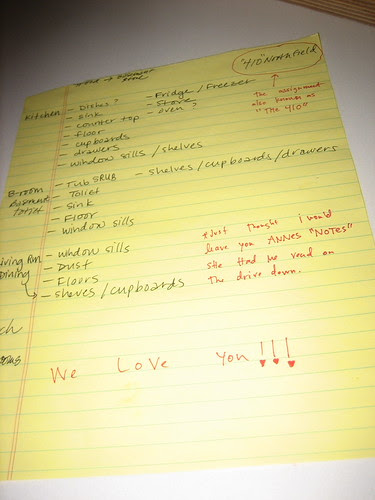 "410" Northfield
Kitchen - Dishes? - Fridge / Freezer
- Sink - Stove
- counter top - oven?
- floor
- cupboards
- drawers
- window sills / shelves
the assignment
also known as
"The 410"
B-room - Tub SRUB - shelves / cupboards / drawers
- Toliet
- Sink
- Floor
- window sills
- window sills
Dining - Dust
- Floors
- shelves / cupboards
*Just thought i would
leave you ANNES "NOTES"
she Had me read on
The drive down.
We LOVE you!!!